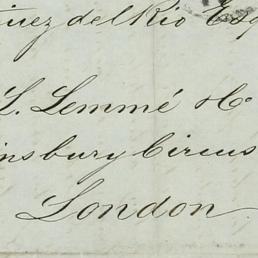 guez del Rio Esq
L. Lemmé & Co
insbury Circus
London